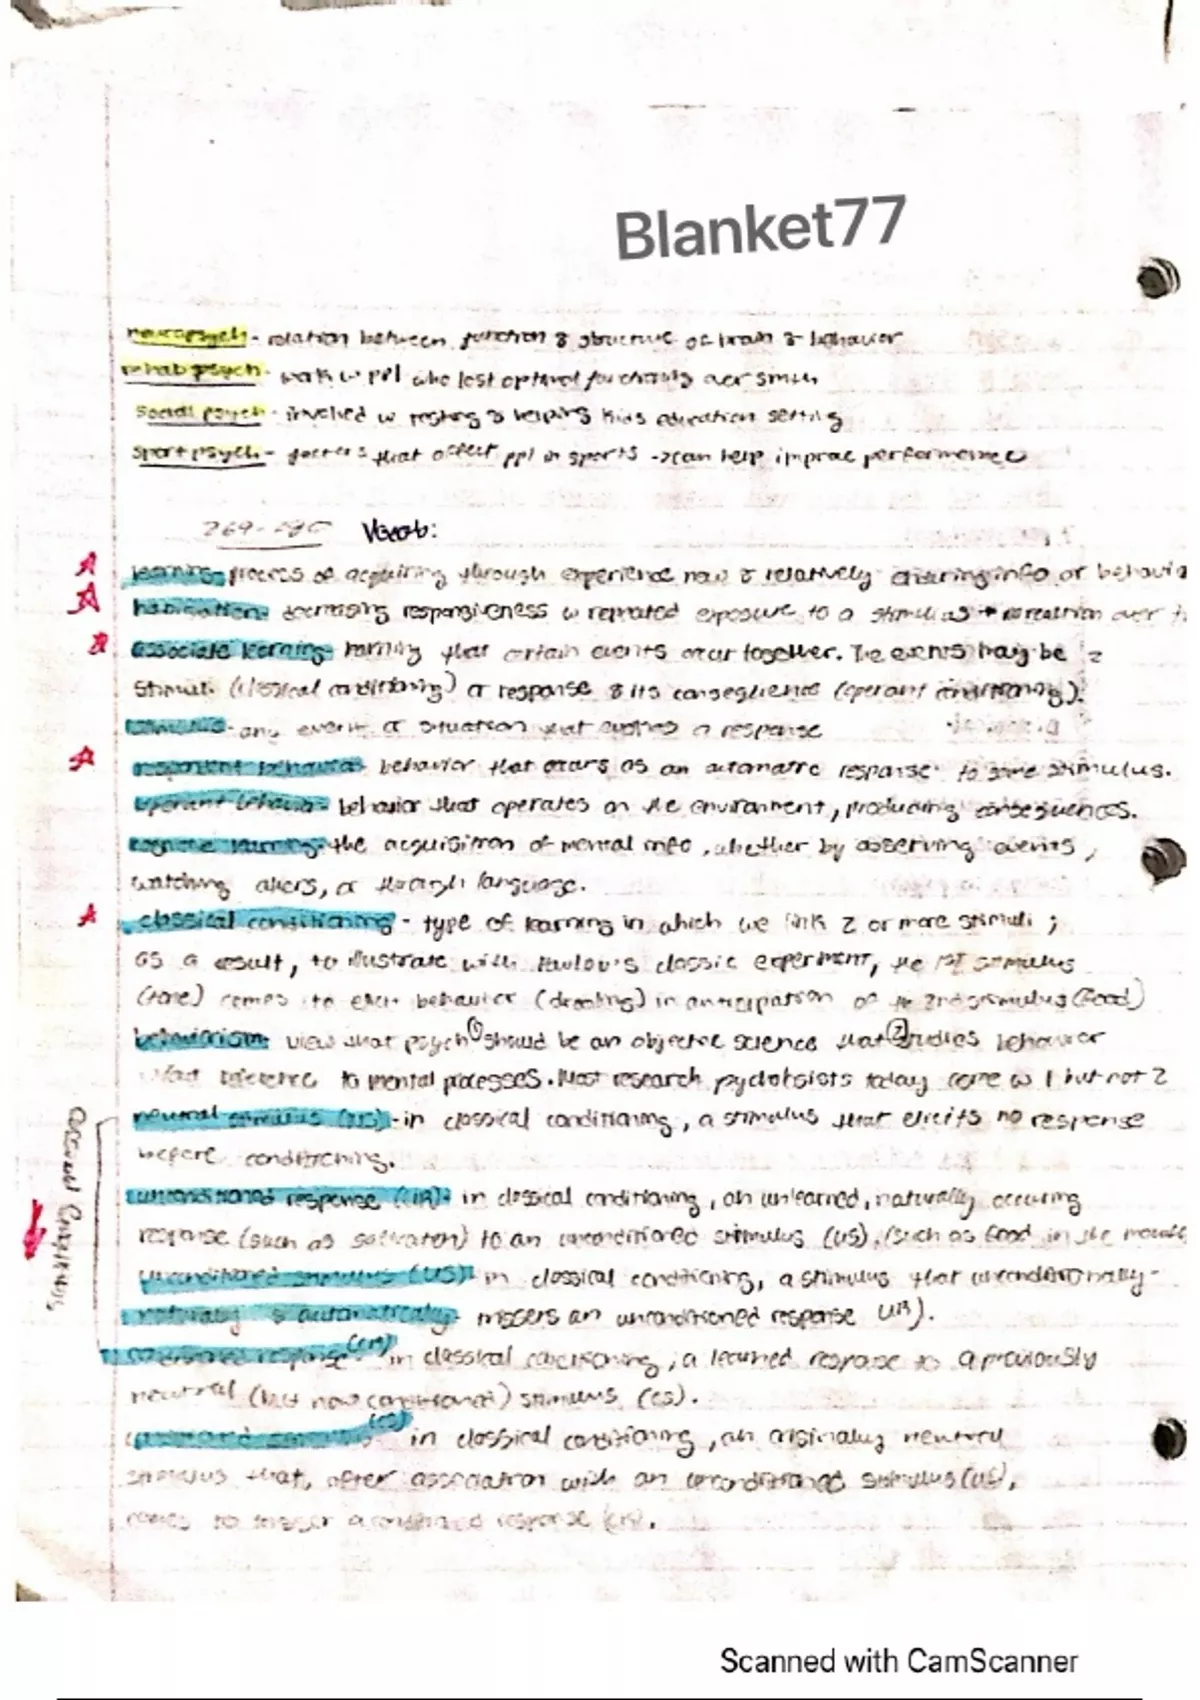 Blanket77
neuropsych - relation between function & structure of brain & behavior
rehab psych - work w ppl who lost optimal functioning aer smth
social psych - involved w testing & helping kids education setting
sport psych - factors that affect ppl in sports -> can help improve performance
269- Vocab:
learning - process of acquiring through experience new & relatively enduring info or behavio
habituation - decreasing responsiveness w repeated exposure to a stimulus → no reaction over
associate learning - learning that certain events occur together. The events may be 2
stimuli (classical conditioning) or response & its consequence (operant conditioning).
stimulus - any event or situation that evokes a response
respondent behavior behavior that occurs as an automatic response to some stimulus.
operant behavior - behavior that operates on the environment, producing consequences.
cognitive learning - the acquisition of mental info, whether by observing events,
watching others, or through language.
classical conditioning - type of learning in which we link 2 or more stimuli ;
as a result, to illustrate with Pavlov's classic experiment, the 1st stimulus
(tone) comes to elicit behavior (drooling) in anticipation of the 2nd stimulus (food)
behaviorism view that psych ① should be an objective science that ② studies behavior
reference to mental processes. Most research today w 1 but not 2
neutral stimulus (NS) - in classical conditioning, a stimulus that elicits no response
before conditioning.
unconditioned response (UR) - in classical conditioning, an unlearned, naturally occuring
response (such as salivation) to an unconditioned stimulus (US). (such as food in the mouth
unconditioned stimulus (US) in classical conditioning, a stimulus that unconditionally -
naturally & automatically - triggers an unconditioned response UR).
conditioned response (CR) in classical conditioning, a learned response to a previously
neutral (but now conditioned) stimulus (CS).
conditioned stimulus (CS) in classical conditioning, an originally neutral
stimulus that, after association with an unconditioned stimulus (US),
comes to trigger a conditioned response (CR).
Scanned with CamScanner